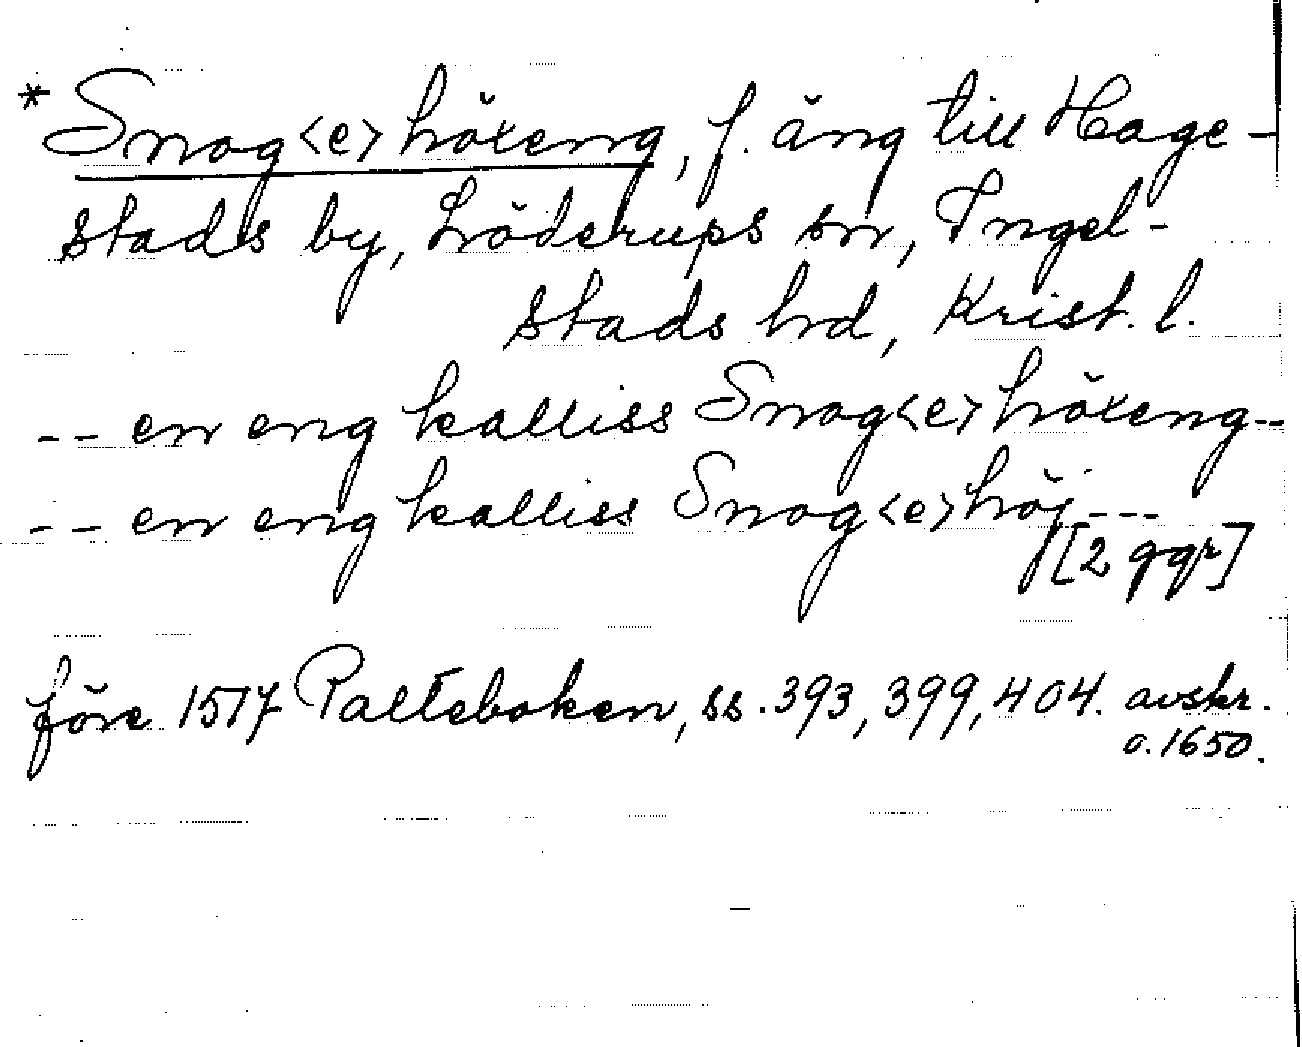 * Snog<e>höxeng, f. äng till Hage-
stads by, Löderups sn, Ingel-
stads hd, Krist. l.
-- en eng kalliss Snog<e>höxeng--
-- en eng kalliss Snog<e>höj---
[2 ggr]
före 1517 Palteboken, ss. 393, 399, 404. avskr.
o. 1650.